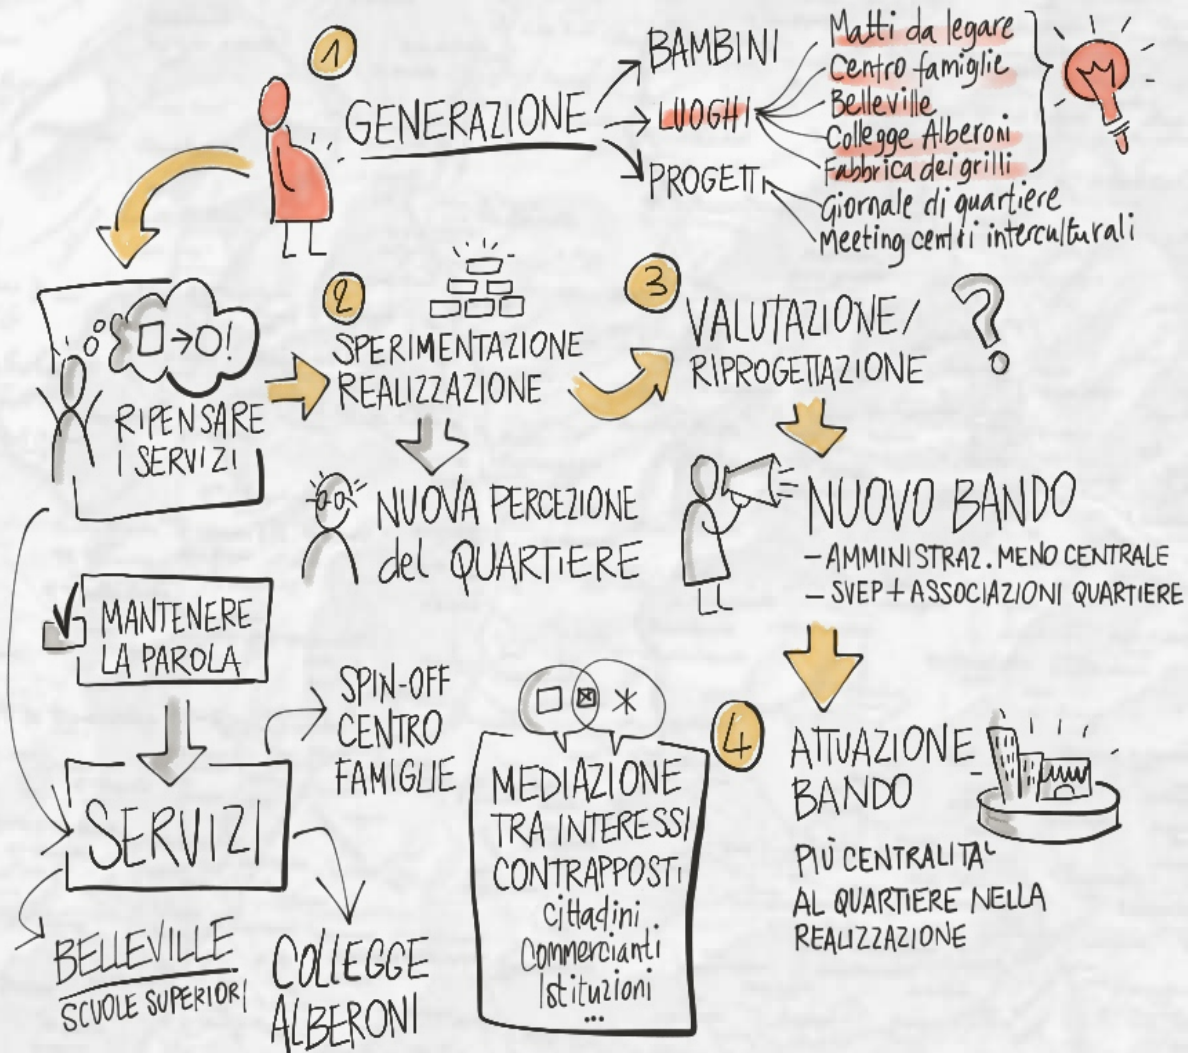 1
GENERAZIONE
BAMBINI
LUOGHI
PROGETTI
Matti da legare
Centro famiglie
Belleville
Collegge Alberoni
Fabbrica dei grilli
Giornale di quartiere
Meeting centri interculturali
!
RIPENSARE
I SERVIZI
2
SPERIMENTAZIONE
REALIZZAZIONE
NUOVA PERCEZIONE
del QUARTIERE
3
VALUTAZIONE/
RIPROGETTAZIONE
?
NUOVO BANDO
- AMMINISTRAZ. MENO CENTRALE
- SVEP + ASSOCIAZIONI QUARTIERE
MANTENERE
LA PAROLA
SERVIZI
SPIN-OFF
CENTRO
FAMIGLIE
BELLEVILLE
SCUOLE SUPERIORI
COLLEGGE
ALBERONI
MEDIAZIONE
TRA INTERESSI
CONTRAPPOSTI
Cittadini
Commercianti
Istituzioni
...
4
ATTUAZIONE
BANDO
PIÙ CENTRALITA'
AL QUARTIERE NELLA
REALIZZAZIONE